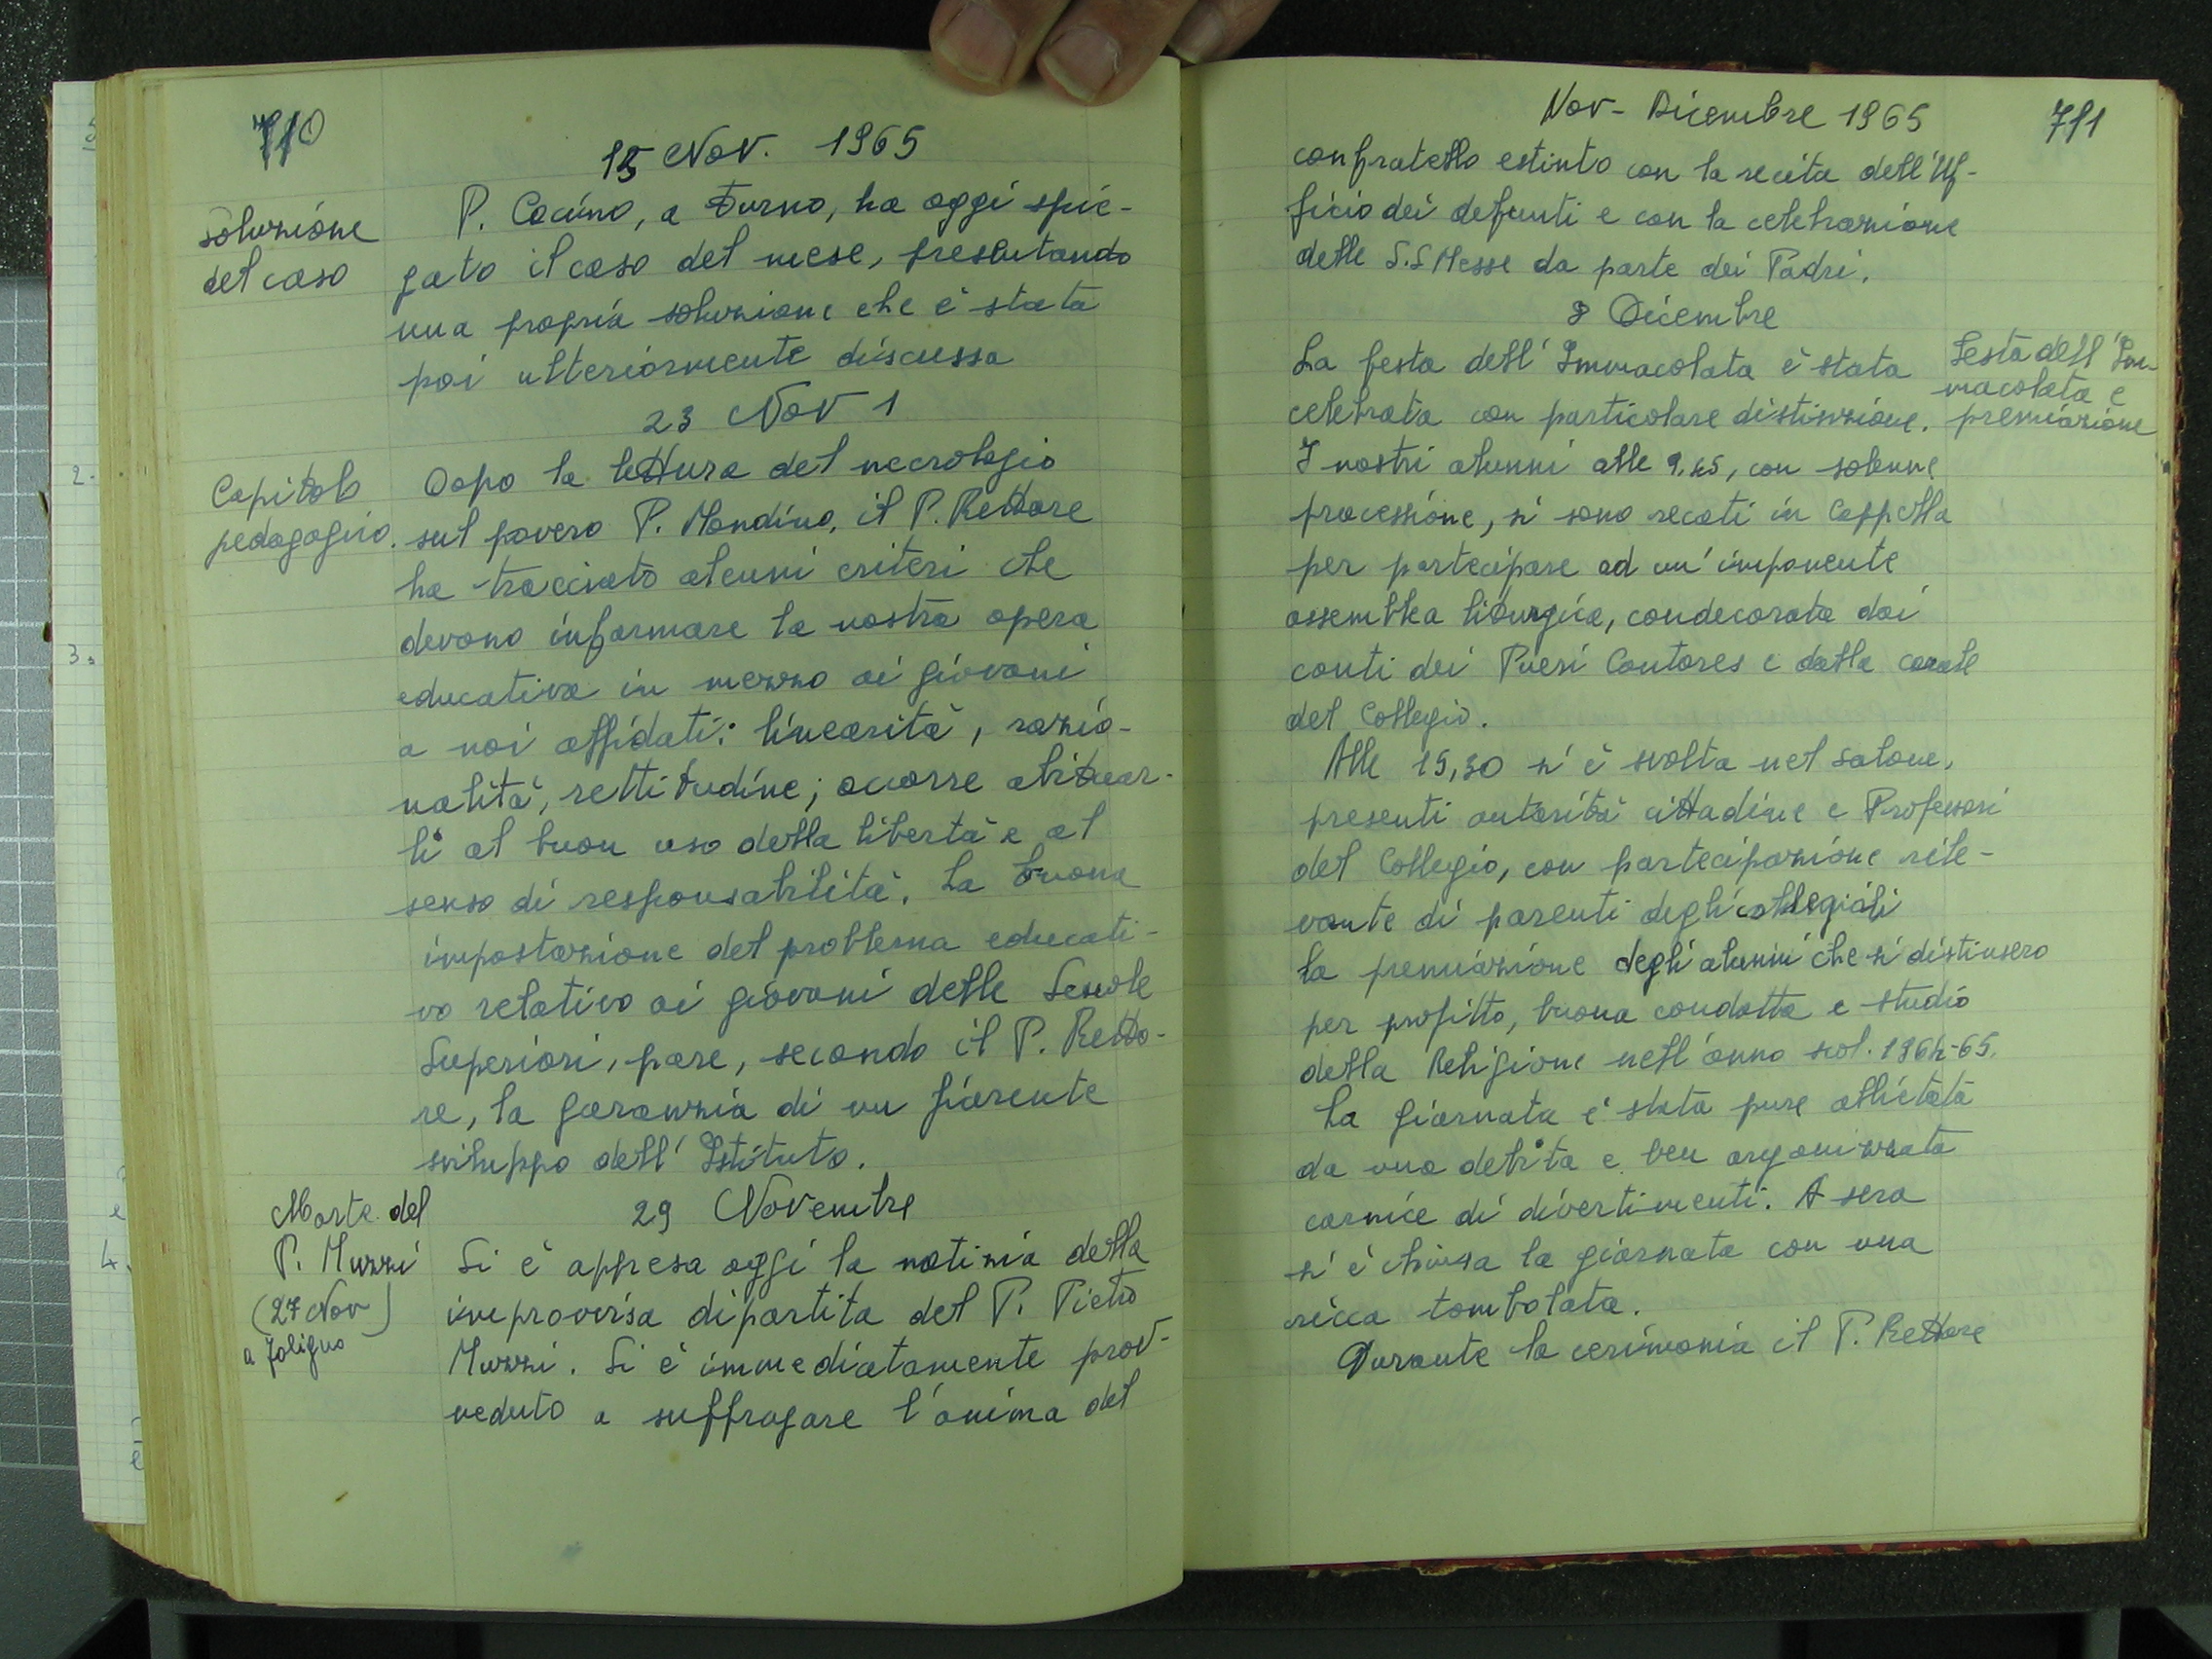 710
15 Nov. 1965
soluzione
del caso
P. Cocino, a turno, ha oggi spie-
gato il caso del mese, presentando
una propria soluzione che è stata
poi ulteriormente discussa
23 Nov 1
Capitolo
pedagogico.
Dopo la lettura del necrologio
sul povero P. Mondino, il P. Rettore
ha tracciato alcuni criteri che
devono informare la nostra opera
educativa in mezzo ai giovani
a noi affidati: linearità, razio-
nalità, rettitudine; occorre abituar-
li al buon uso della libertà e al
senso di responsabilità. La buona
impostazione del problema educati-
vo relativo ai giovani delle Scuole
Superiori, pare, secondo il P. Retto-
re, la garanzia di un fiorente
sviluppo dell'Istituto.
29 Novembre
Morte del
P. Muzzi
(27 Nov)
a Foligno
Si è appresa oggi la notizia della
improvvisa dipartita del P. Pietro
Muzzi. Si è immediatamente prov-
veduto a suffragare l'anima del
Nov - Dicembre 1965
711
confratello estinto con la recita dell'Uf-
ficio dei defunti e con la celebrazione
delle S.S Messe da parte dei Padri.
8 Dicembre
Festa dell'Im-
macolata e
premiazione
La festa dell'Immacolata è stata
celebrata con particolare distinzione.
I nostri alunni alle 9.45, con solenne
processione, si sono recati in Cappella
per partecipare ad un'imponente
assemblea liturgica, condecorata dai
canti dei Pueri Cantores e dalla corale
del Collegio.
Alle 15,30 si è svolta nel salone,
presenti autorità cittadine e Professori
del Collegio, con partecipazione rile-
vante di parenti degli collegiali
la premiazione degli alunni che si distinsero
per profitto, buona condotta e studio
della Religione nell'anno scol. 1964-65.
La giornata è stata pure allietata
da una debita e ben organizzata
cornice di divertimenti. A sera
si è chiusa la giornata con una
ricca tombolata.
Durante la cerimonia il P. Rettore
2.
3.
4.